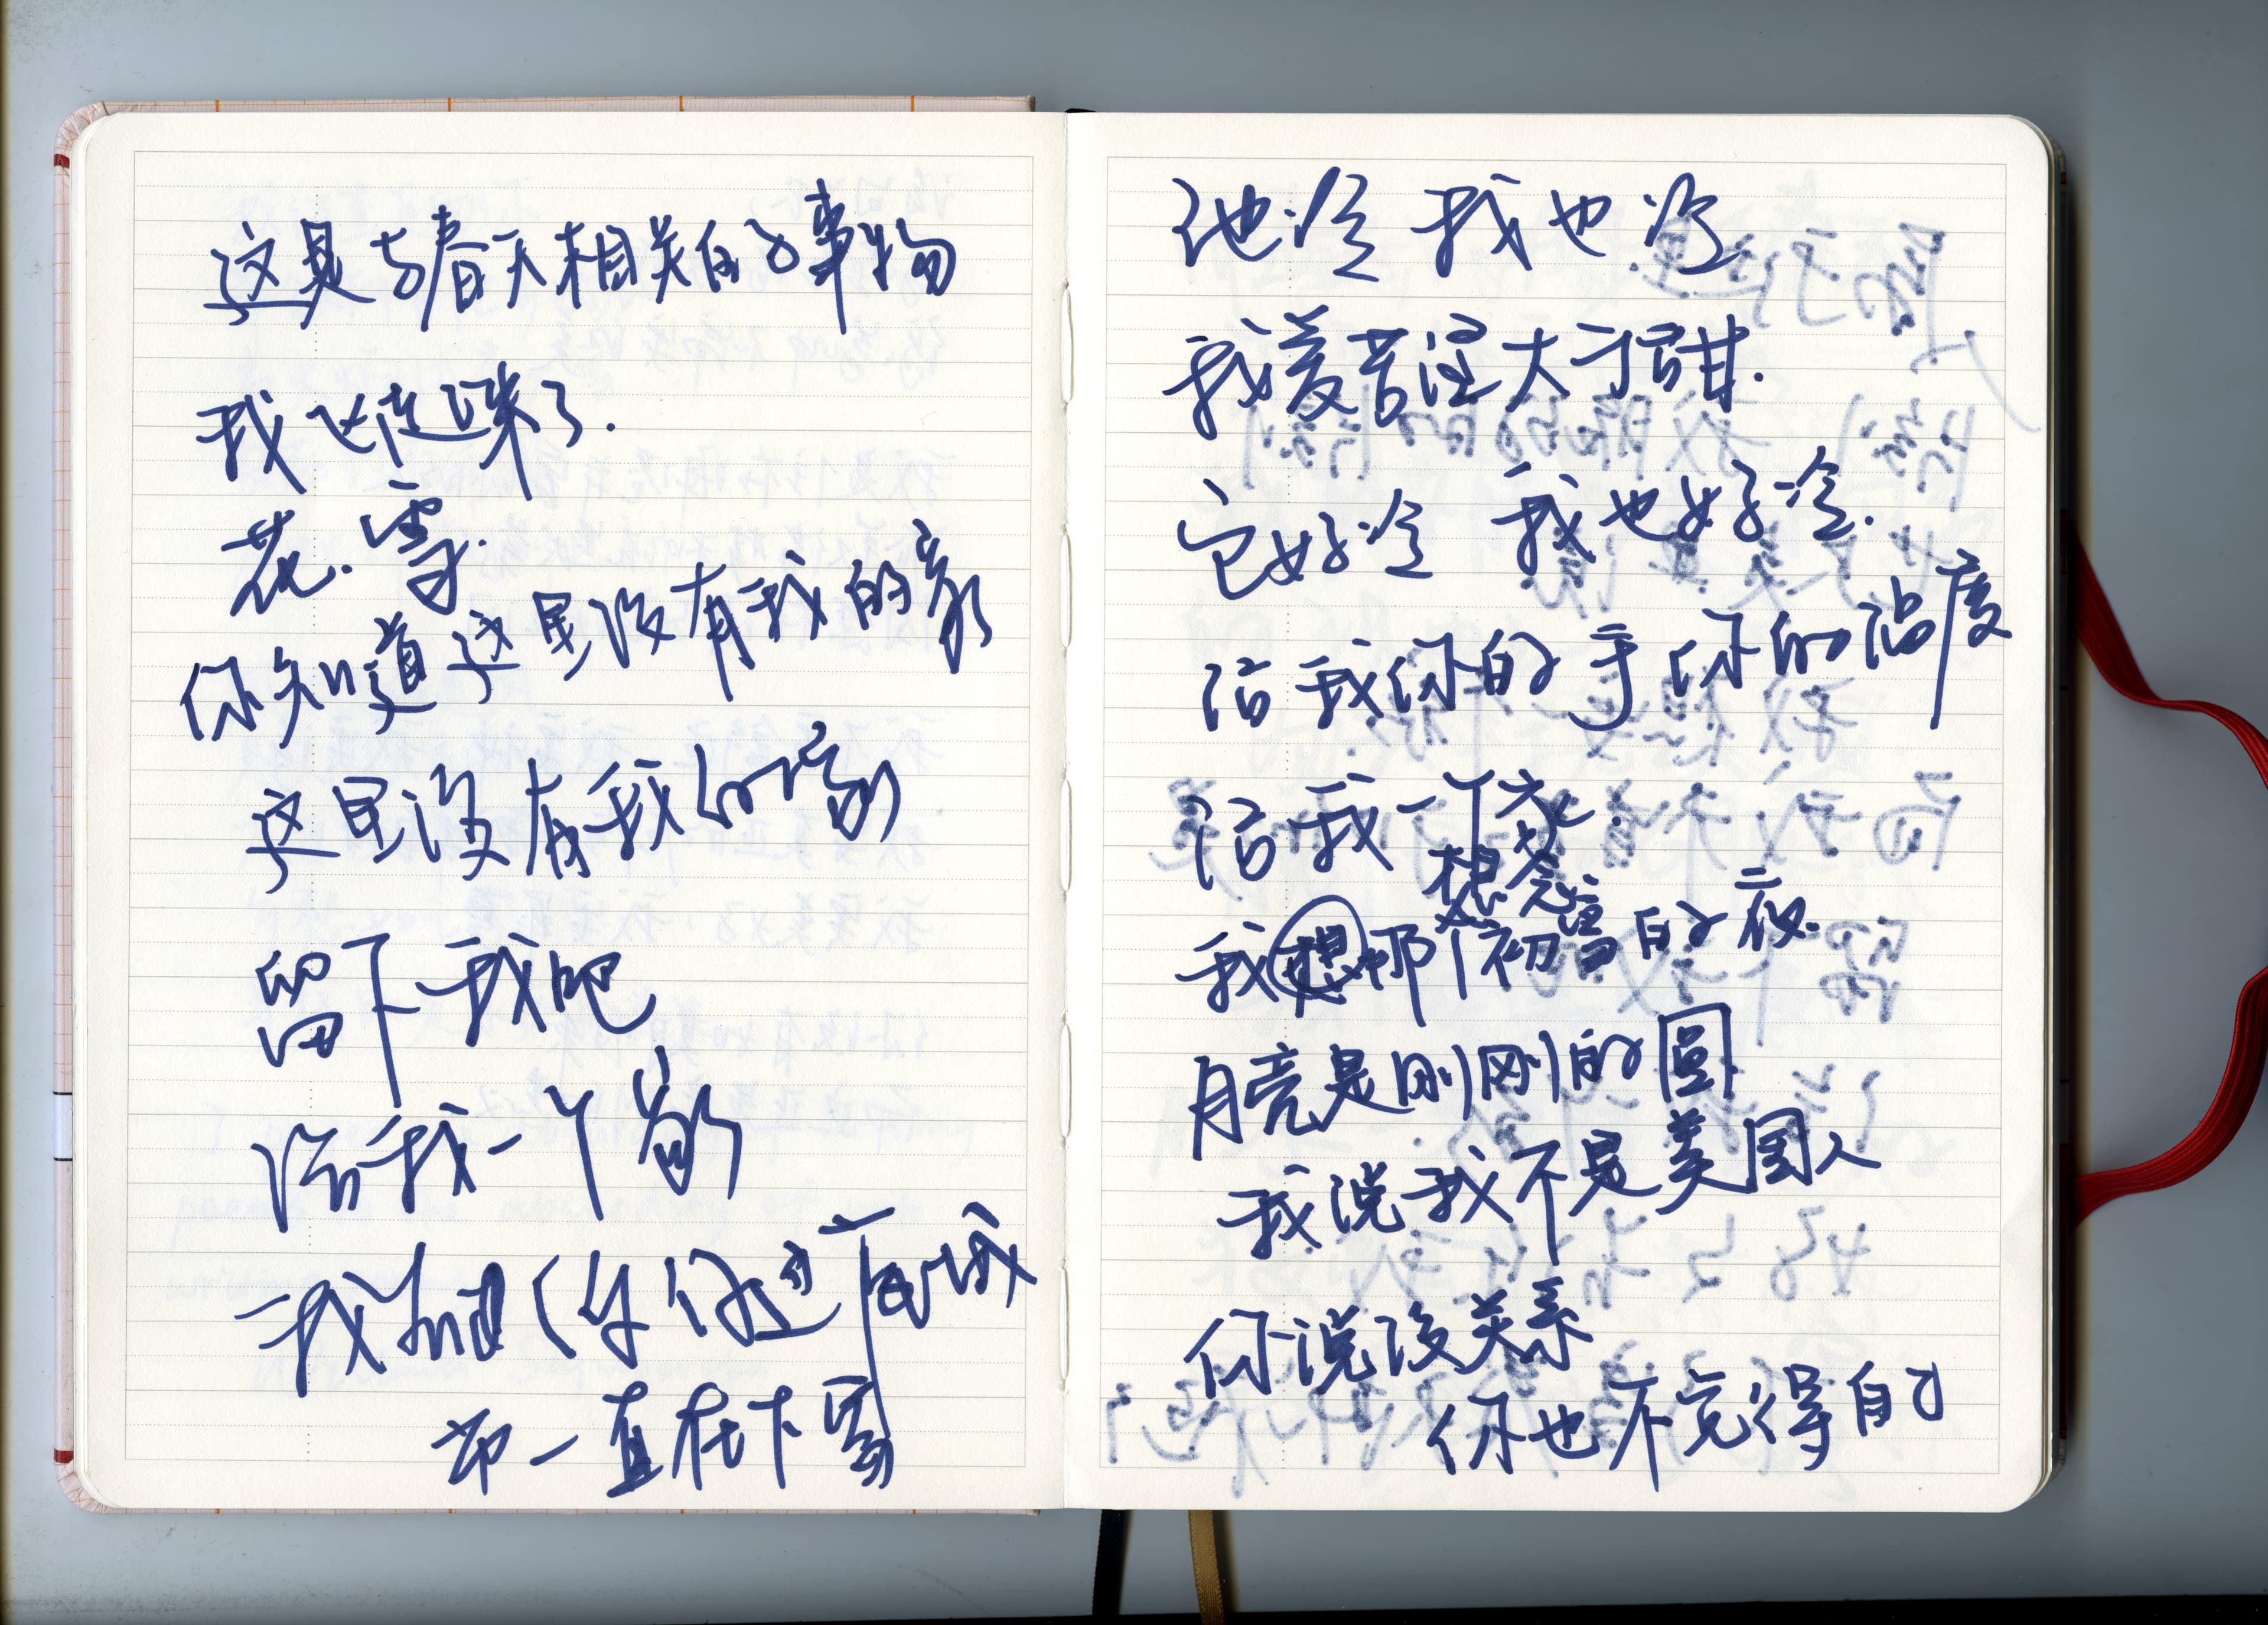 这是与春天相关的事物
我飞进来了.
花.雪.
你知道这里没有我的家
这里没有我的家
留下我吧
给我一个家
我
却一直在下雪
他冷 我也冷
我爱苦涩大于甜.
它好冷 我也好冷.
给我你的手 你的温度
给我一个花.
想念
我想那个初雪的夜.
月亮是刚刚的圆
我说我不是美国人
你说没关系
你也不觉得自己